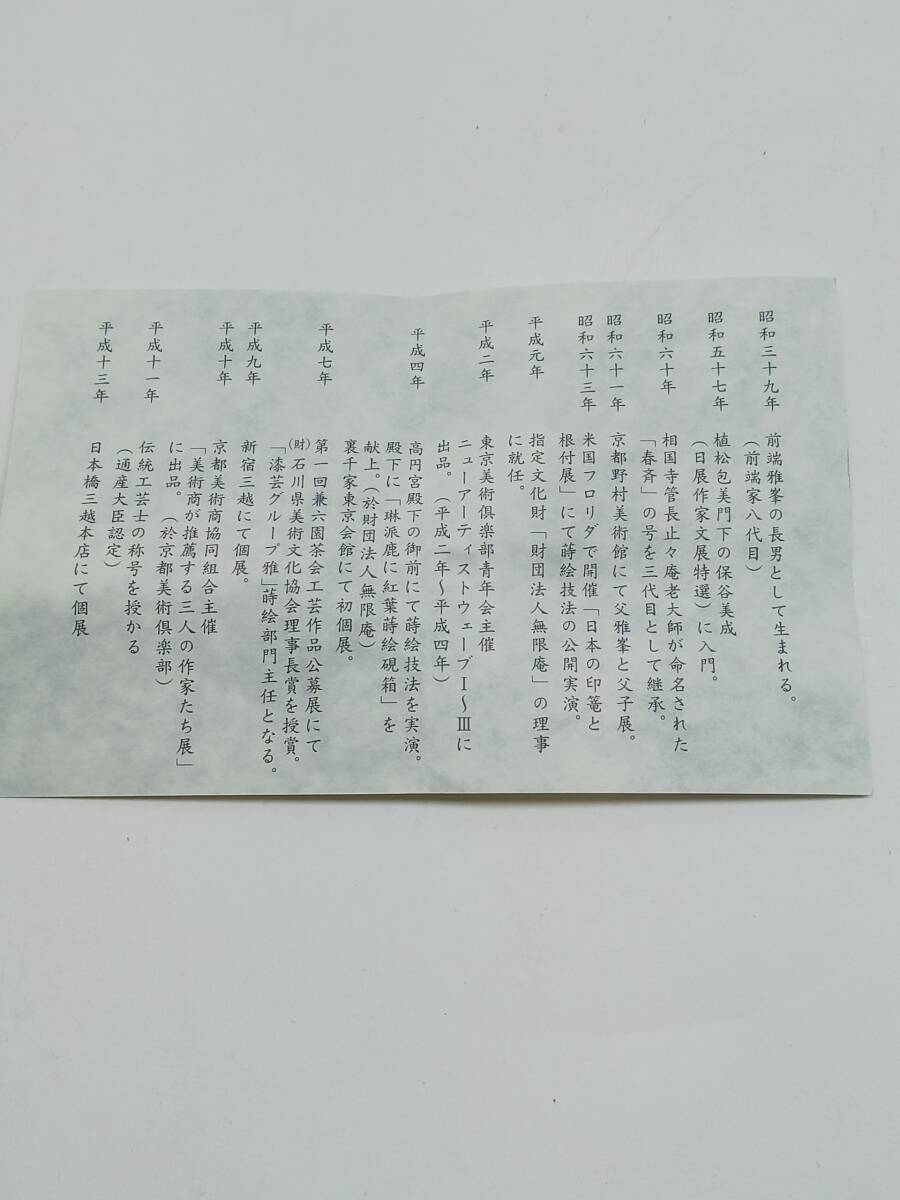 昭和三十九年　前端雅峯の長男として生まれる。
（前端家八代目）
昭和五十七年　植松包美門下の保谷美成
（日展作家文展特選）に入門。
昭和六十年　相国寺管長止々庵老大師が命名された
「春斉」の号を三代目として継承。
昭和六十一年　京都野村美術館にて父雅峯と父子展。
昭和六十三年　米国フロリダで開催「日本の印篭と
根付展」にて蒔絵技法の公開実演。
平成元年　指定文化財「財団法人無限庵」の理事
に就任。
平成二年　東京美術倶楽部青年会主催
ニューアーティストウェーブⅠ～Ⅲに
出品。（平成二年～平成四年）
平成四年　高円宮殿下の御前にて蒔絵技法を実演。
殿下に「琳派鹿に紅葉蒔絵硯箱」を
献上。（於財団法人無限庵）
裏千家東京会館にて初個展。
平成七年　第一回兼六園茶会工芸作品公募展にて
(財)石川県美術文化協会理事長賞を授賞。
「漆芸グループ雅」蒔絵部門主任となる。
平成九年　新宿三越にて個展。
平成十年　京都美術商協同組合主催
「美術商が推薦する三人の作家たち展」
に出品。（於京都美術倶楽部）
平成十一年　伝統工芸士の称号を授かる
（通産大臣認定）
平成十三年　日本橋三越本店にて個展